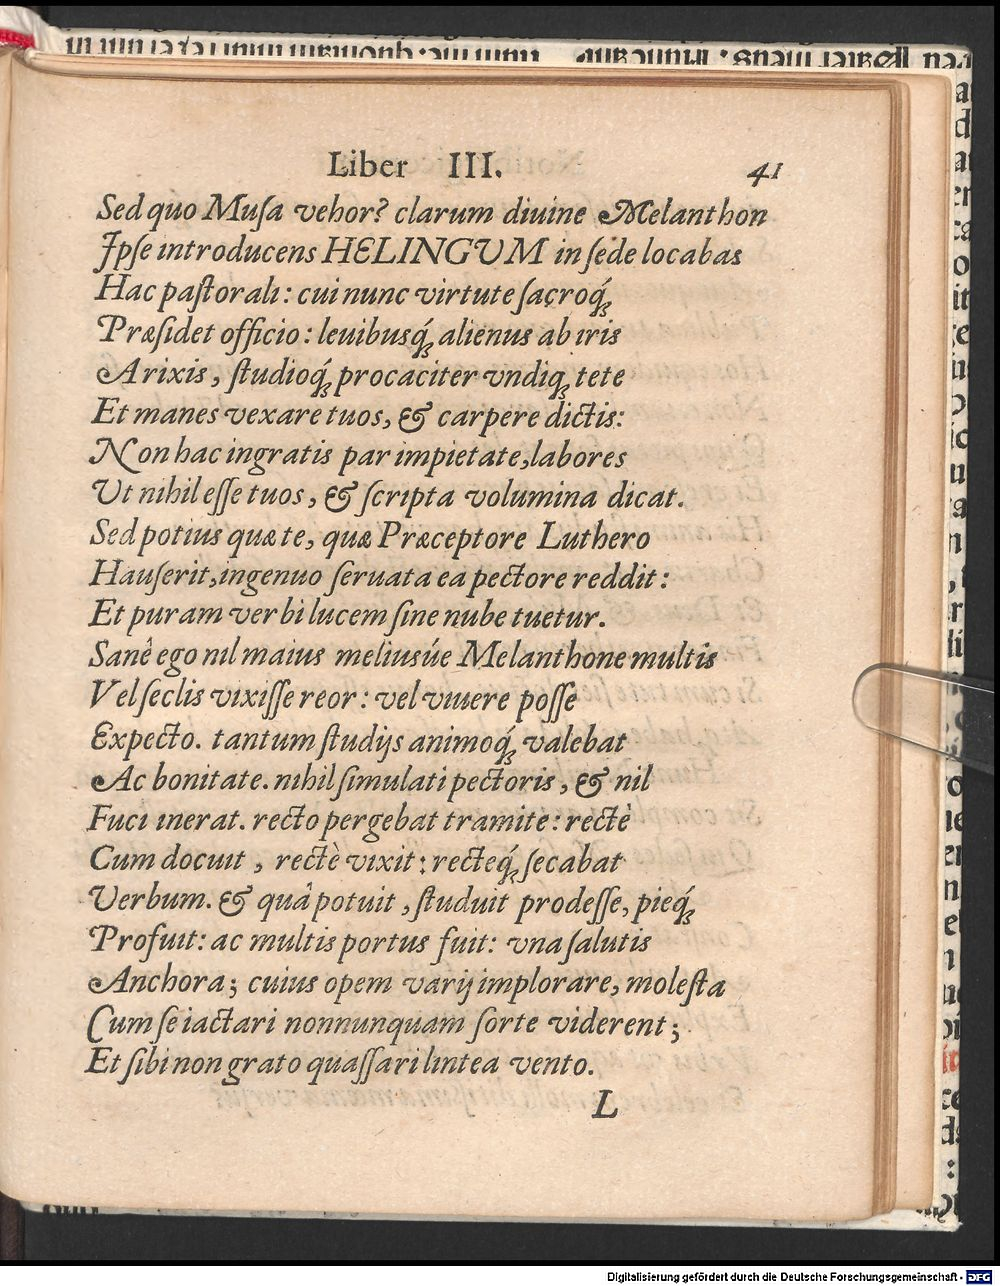 Liber III. 41
Sed quo Muſa vehor? clarum diuine Melanthon
Ipſe introducens HELINGVM in ſede locabas
Hac paſtorali: cui nunc virtute ſacroq́ꝫ
Præſidet officio: leuibusq́ꝫ alienus ab iris
A rixis, ſtudioq́ꝫ procaciter vndiqꝫ tete
Et manes vexare tuos, & carpere dictis:
Non hac ingratis par impietate, labores
Ut nihil eſſe tuos, & ſcripta volumina dicat.
Sed potius quæ te, quæ Præceptore Luthero
Hauſerit, ingenuo ſeruata ea pectore reddit:
Et puram verbi lucem ſine nube tuetur.
Sanè ego nil maius meliusúe Melanthone multis
Vel ſeclis vixiſſe reor: vel viuere poſſe
Expecto. tantum ſtudijs animoq́ꝫ valebat
Ac bonitate. nihil ſimulati pectoris, & nil
Fuci inerat. recto pergebat tramite: rectè
Cum docuit, rectè vixit: recteq́ꝫ ſecabat
Verbum. & quâ potuit, ſtuduit prodeſſe, pieq́ꝫ
Profuit: ac multis portus fuit: vna ſalutis
Anchora; cuius opem varij implorare, moleſta
Cum ſe iactari nonnunquam ſorte viderent;
Et ſibi non grato quaſſari lintea vento.
L
Digitalisierung gefördert durch die Deutsche Forschungsgemeinschaft - DFG